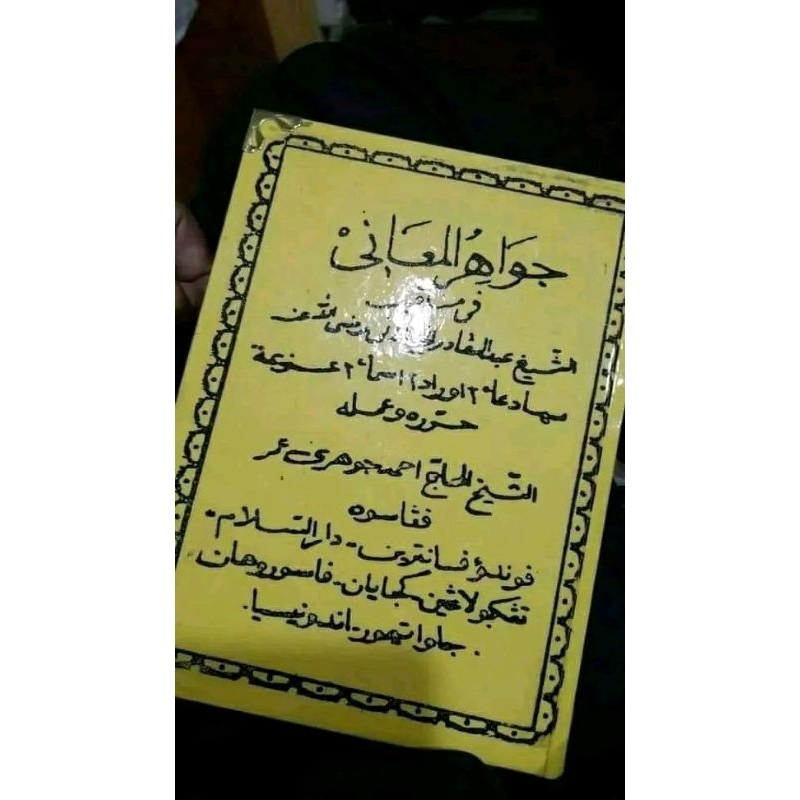 جَوَاهِرُ الْمَعَانِيْ
في مناقب
الشّيخ عبد القادر الجيلاني رضي الله عنه
بهادعاء٢ اوراد٢ اسماء٢ عزيمة
حرّره وعمله
الشّيخ الحاجّ احمد جوهري عمر
فڠاسوه
فوندؤ فسانترين - دار السّلام -
تڠكولاڠين - كجايان - فاسوروهان
جاوا تيمور - اندونيسيا .